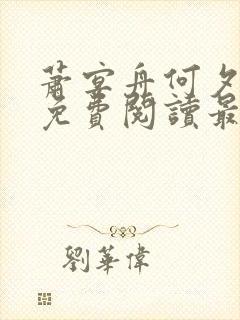 蕭宴舟何夕
免費閱讀最
劉華偉